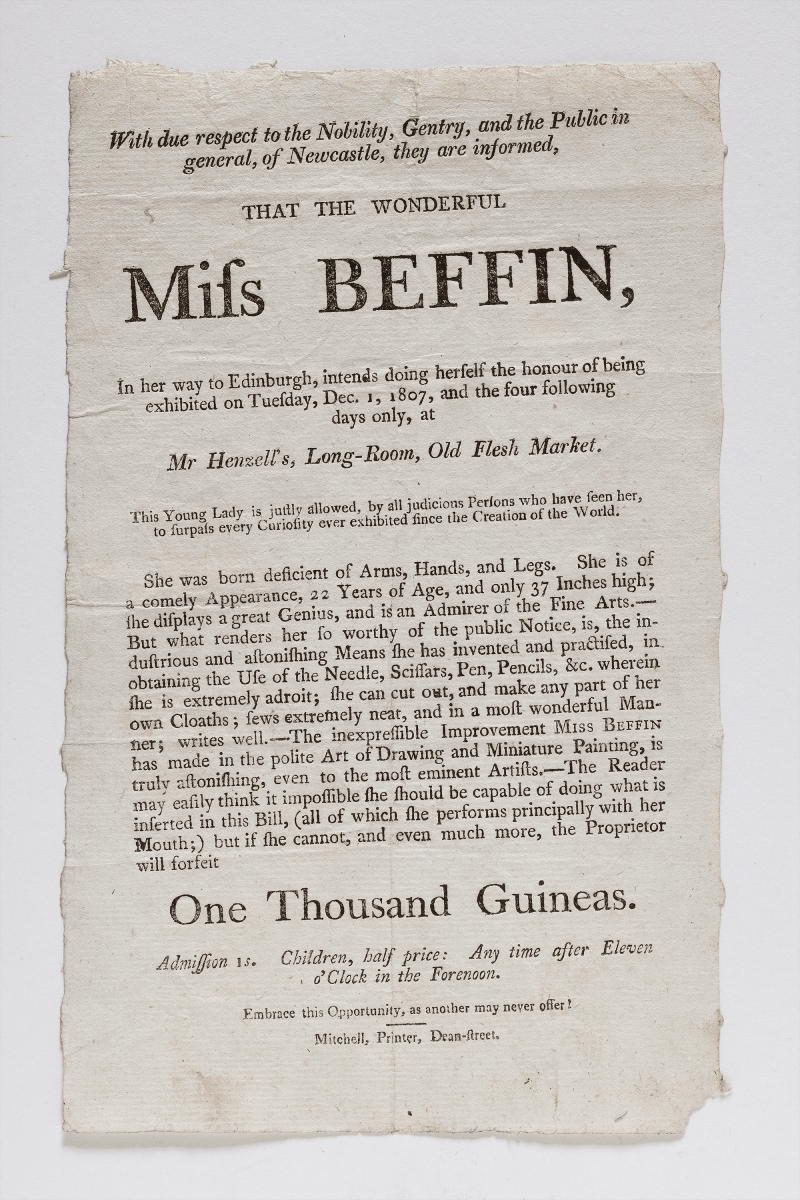 With due respect to the Nobility, Gentry, and the Public in
general, of Newcastle, they are informed,
THAT THE WONDERFUL
Miſs BEFFIN,
In her way to Edinburgh, intends doing herſelf the honour of being
exhibited on Tueſday, Dec. 1, 1807, and the four following
days only, at
Mr Henzell's, Long-Room, Old Flesh Market.
This Young Lady is juſtly allowed, by all judicious Perſons who have ſeen her,
to ſurpaſs every Curioſity ever exhibited ſince the Creation of the World.
She was born deficient of Arms, Hands, and Legs. She is of
a comely Appearance, 22 Years of Age, and only 37 Inches high;
ſhe diſplays a great Genius, and is an Admirer of the Fine Arts.—
But what renders her ſo worthy of the public Notice, is, the in-
duſtrious and aſtoniſhing Means ſhe has invented and practiſed, in
obtaining the Uſe of the Needle, Sciſſars, Pen, Pencils, &c. wherein
ſhe is extremely adroit; ſhe can cut out, and make any part of her
own Cloaths; ſews extremely neat, and in a moſt wonderful Man-
ner; writes well.—The inexpreſſible Improvement MISS BEFFIN
has made in the polite Art of Drawing and Miniature Painting, is
truly aſtoniſhing, even to the moſt eminent Artiſts.—The Reader
may eaſily think it impoſſible ſhe ſhould be capable of doing what is
inſerted in this Bill, (all of which ſhe performs principally with her
Mouth;) but if ſhe cannot, and even much more, the Proprietor
will forfeit
One Thousand Guineas.
Admiſſion 1s. Children, half price: Any time after Eleven
o'Clock in the Forenoon.
Embrace this Opportunity, as another may never offer!
Mitchell, Printer, Dean-ſtreet.